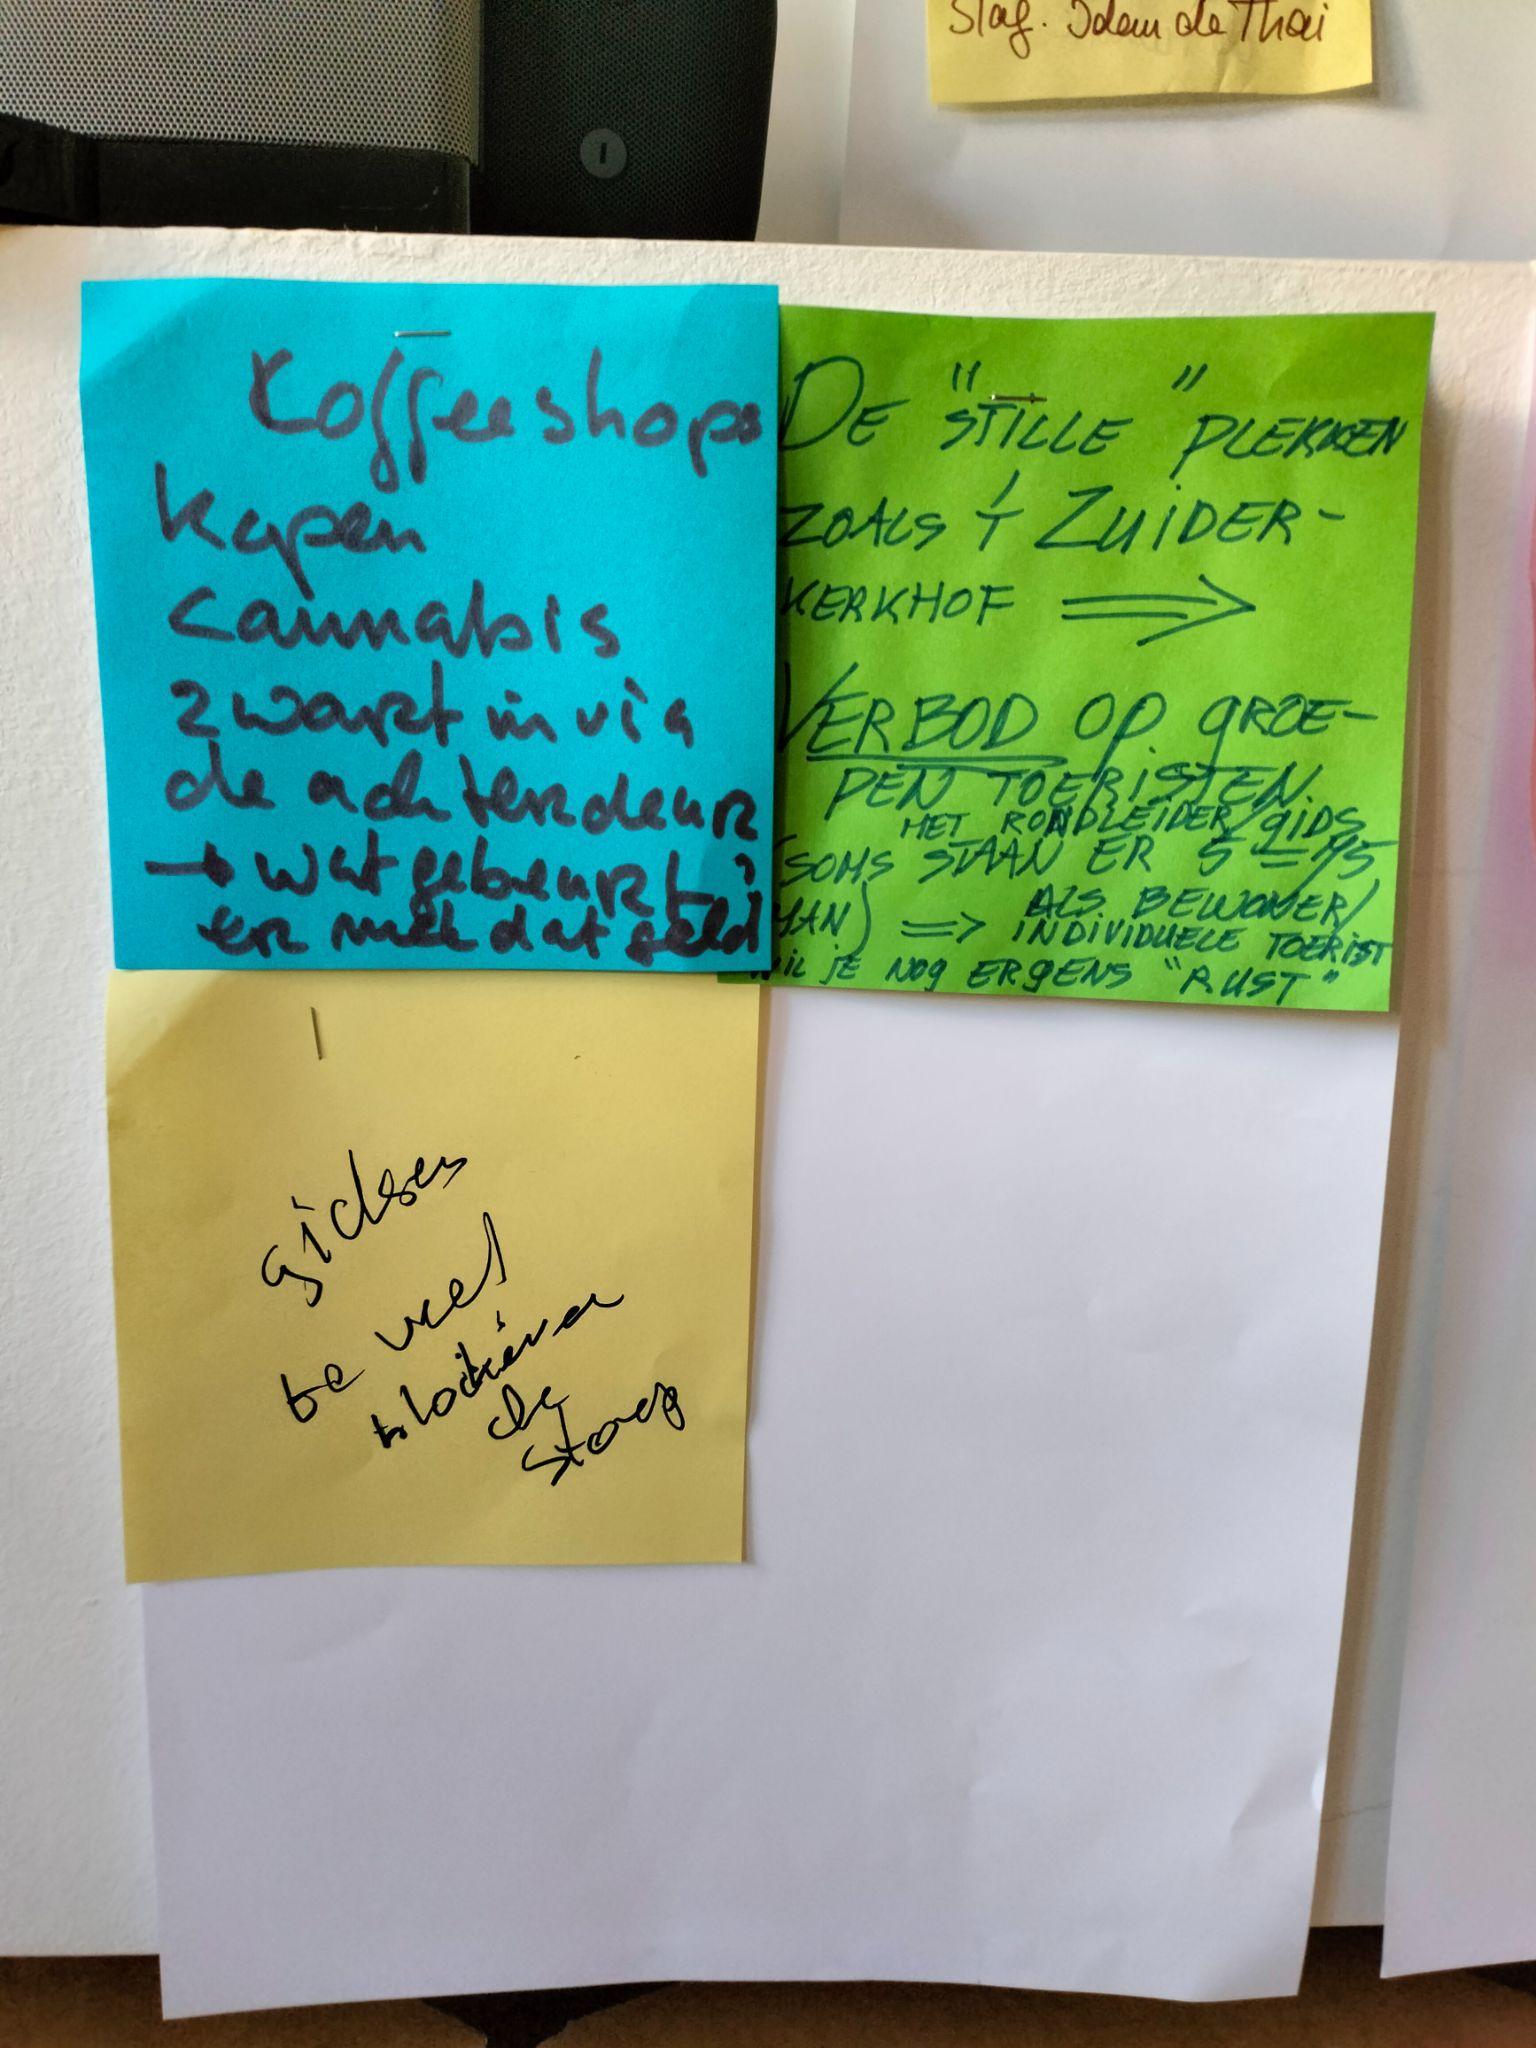 Slag. Idem de Thai
Koffeeshops
kopen
cannabis
zwart in via
de achterdeur
→ wat gebeurt
er mee dat geld?
DE "STILLE" PLEKKEN
ZOALS 'T ZUIDER-
KERKHOF ⟹
VERBOD OP GROE-
PEN TOERISTEN
MET RONDLEIDER/GIDS
(SOMS STAAN ER 5 =/45
MAN) => ALS BEWONER/
INDIVIDUELE TOERIST
WIL JE NOG ERGENS "RUST"
gidsen
te veel
blokkeren
de
stoep